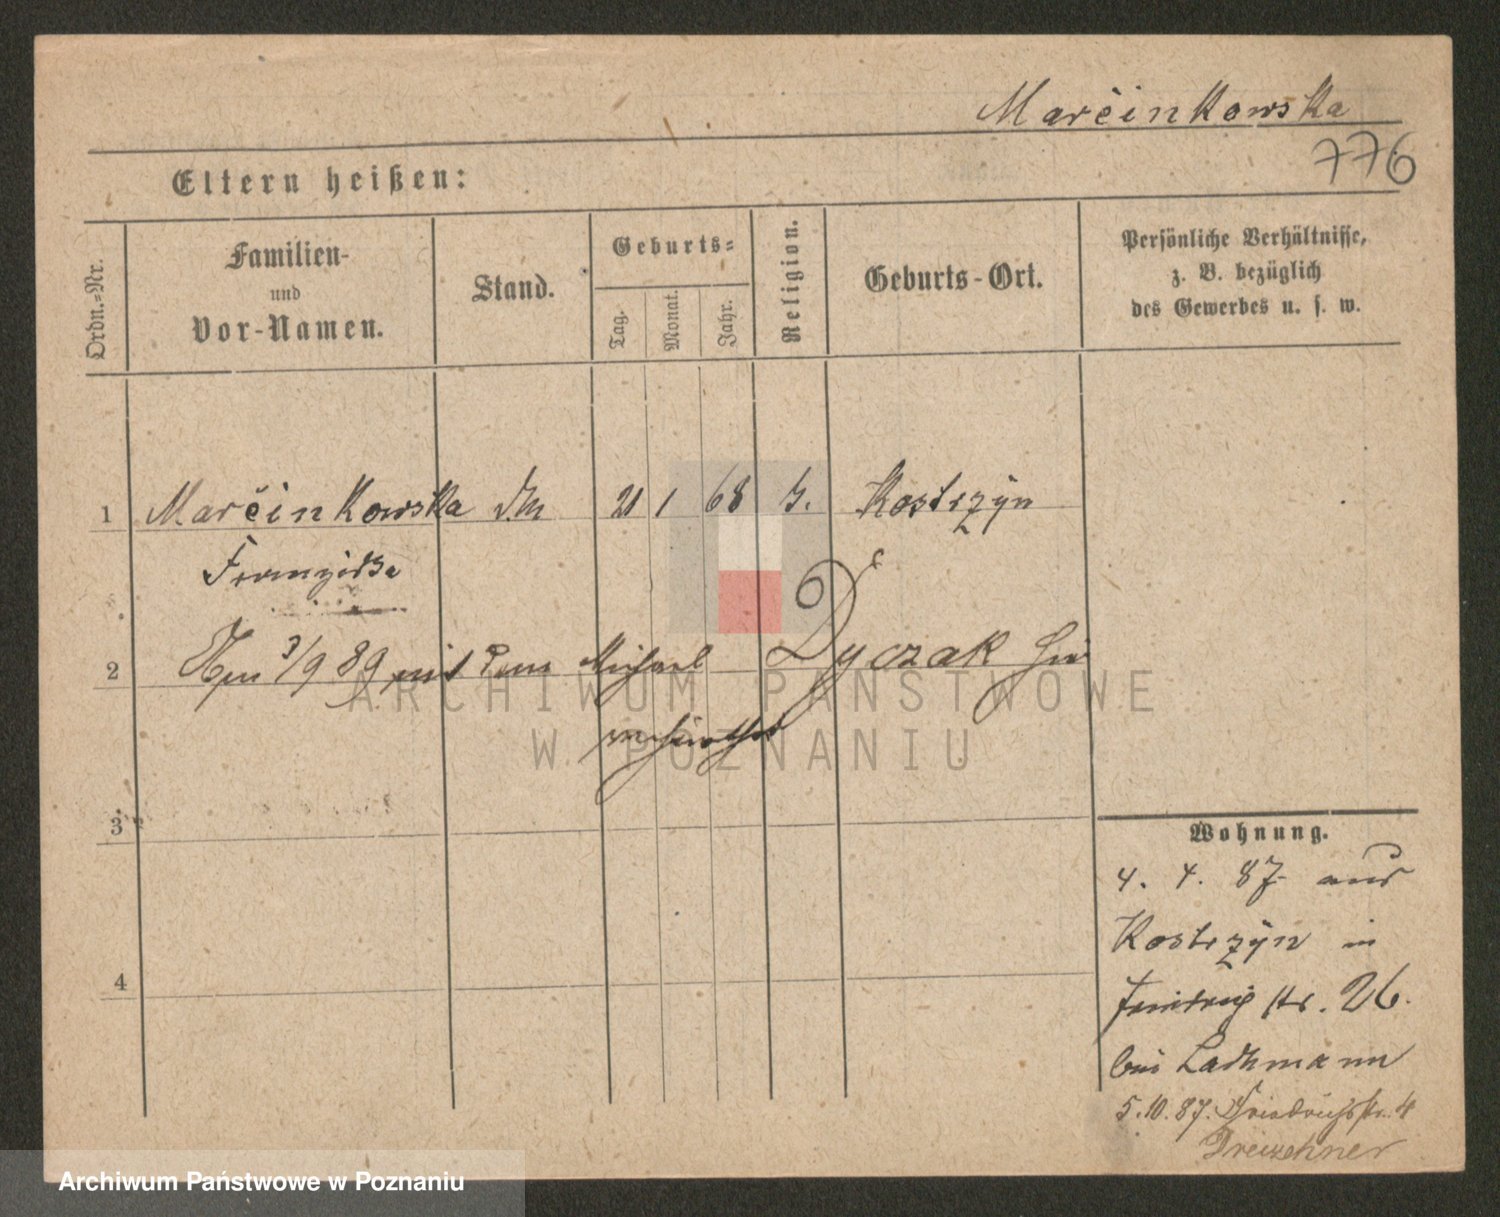 Marcinkowska
776
Eltern heißen:
Ordn.-Nr.
Familien-
und
Vor-Namen.
Stand.
Geburts-
Tag.
Monat.
Jahr.
Religion.
Geburts-Ort.
Persönliche Verhältnisse,
z. B. bezüglich
des Gewerbes u. s. w.
1 Marcinkowska 21 1 68 Kostrzyn
Franziska
2 3/9 89 mit dem Michael Dyczak hier
verheirathet
3
4
Wohnung.
4. 4. 87 aus
Kostrzyn in
str. 26.
bei Lachmann
5.10.87. Friedrichstr. 4
Dreizehner
ARCHIWUM PAŃSTWOWE
W POZNANIU
Archiwum Państwowe w Poznaniu